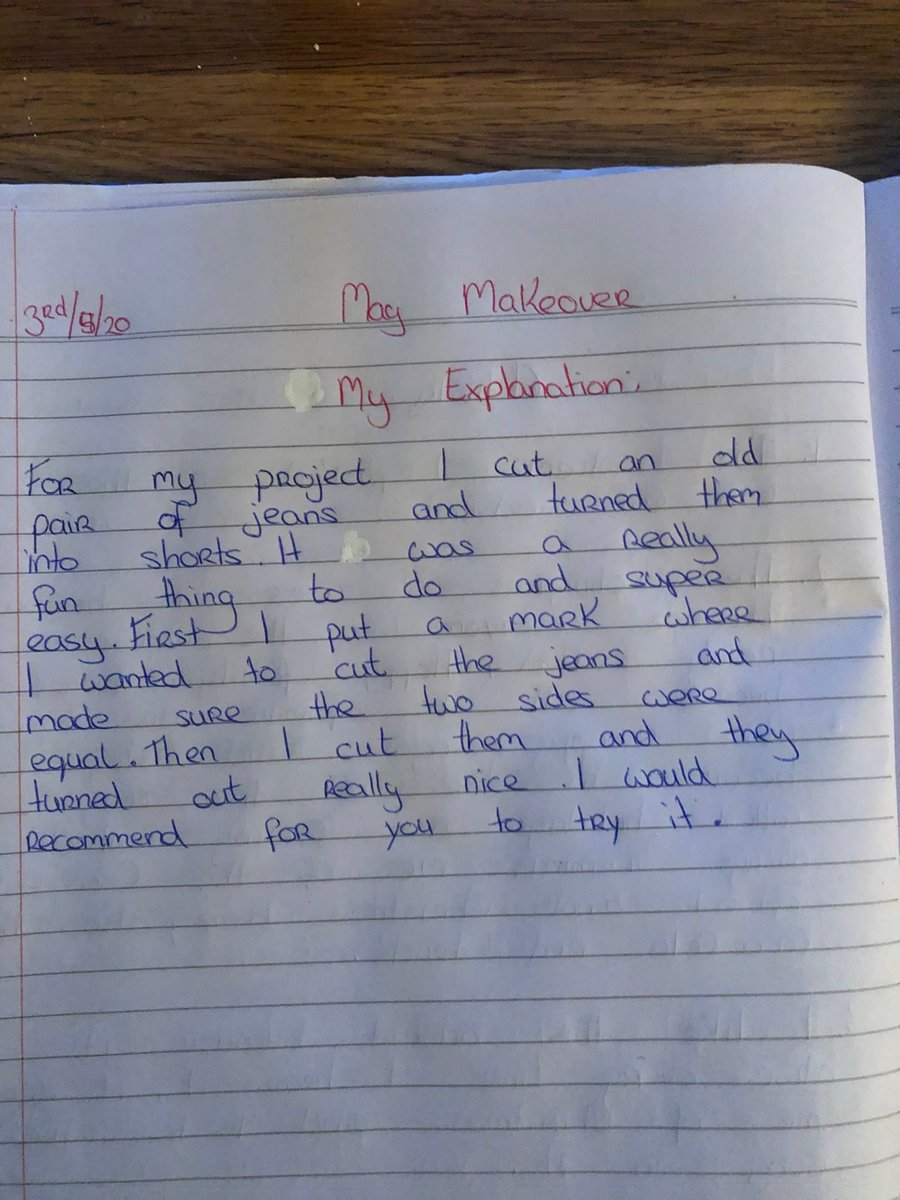 3rd/5/20 May Makeover
My Explanation:
For my project I cut an old
pair of jeans and turned them
into shorts. It was a really
fun thing to do and super
easy. First I put a mark where
I wanted to cut the jeans and
made sure the two sides were
equal. Then I cut them and they
turned out really nice. I would
recommend for you to try it.